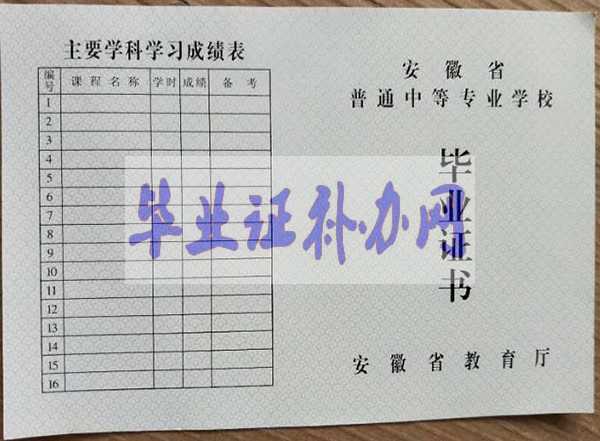 主要学科学习成绩表
编号 课程名称 学时 成绩 备考
1
2
3
4
5
6
7
8
9
10
11
12
13
14
15
16
安徽省
普通中等专业学校
毕业证书
安徽省教育厅
毕业证补办网